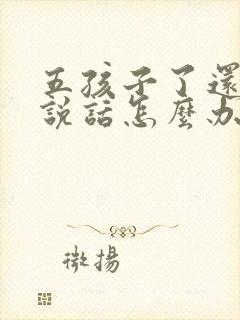 五孩子了還
説話怎麼办
微揚